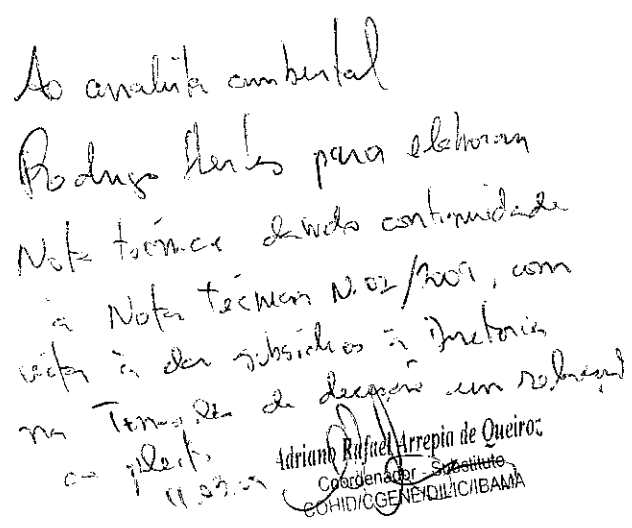 Ao analista ambiental
Rodrigo Herles para elaborar
Nota técnica dando continuidade
à Nota Técnica N.02/2009, com
vistas à dar subsídios à Diretoria
na Tomada de decisão em relação
ao pleito.
11.03.09
Adriano Rafael Arrepia de Queiroz
Coordenador - Substituto
COHID/CGENE/DILIC/IBAMA